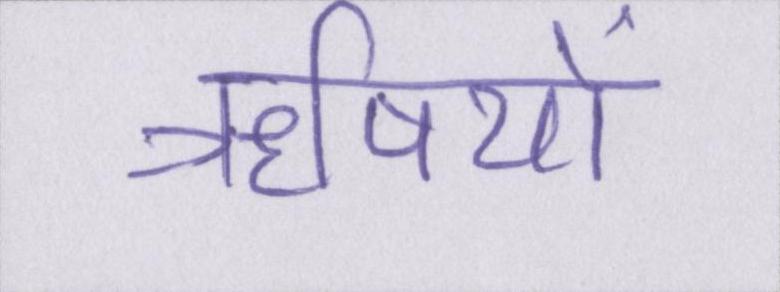 ऋषियों